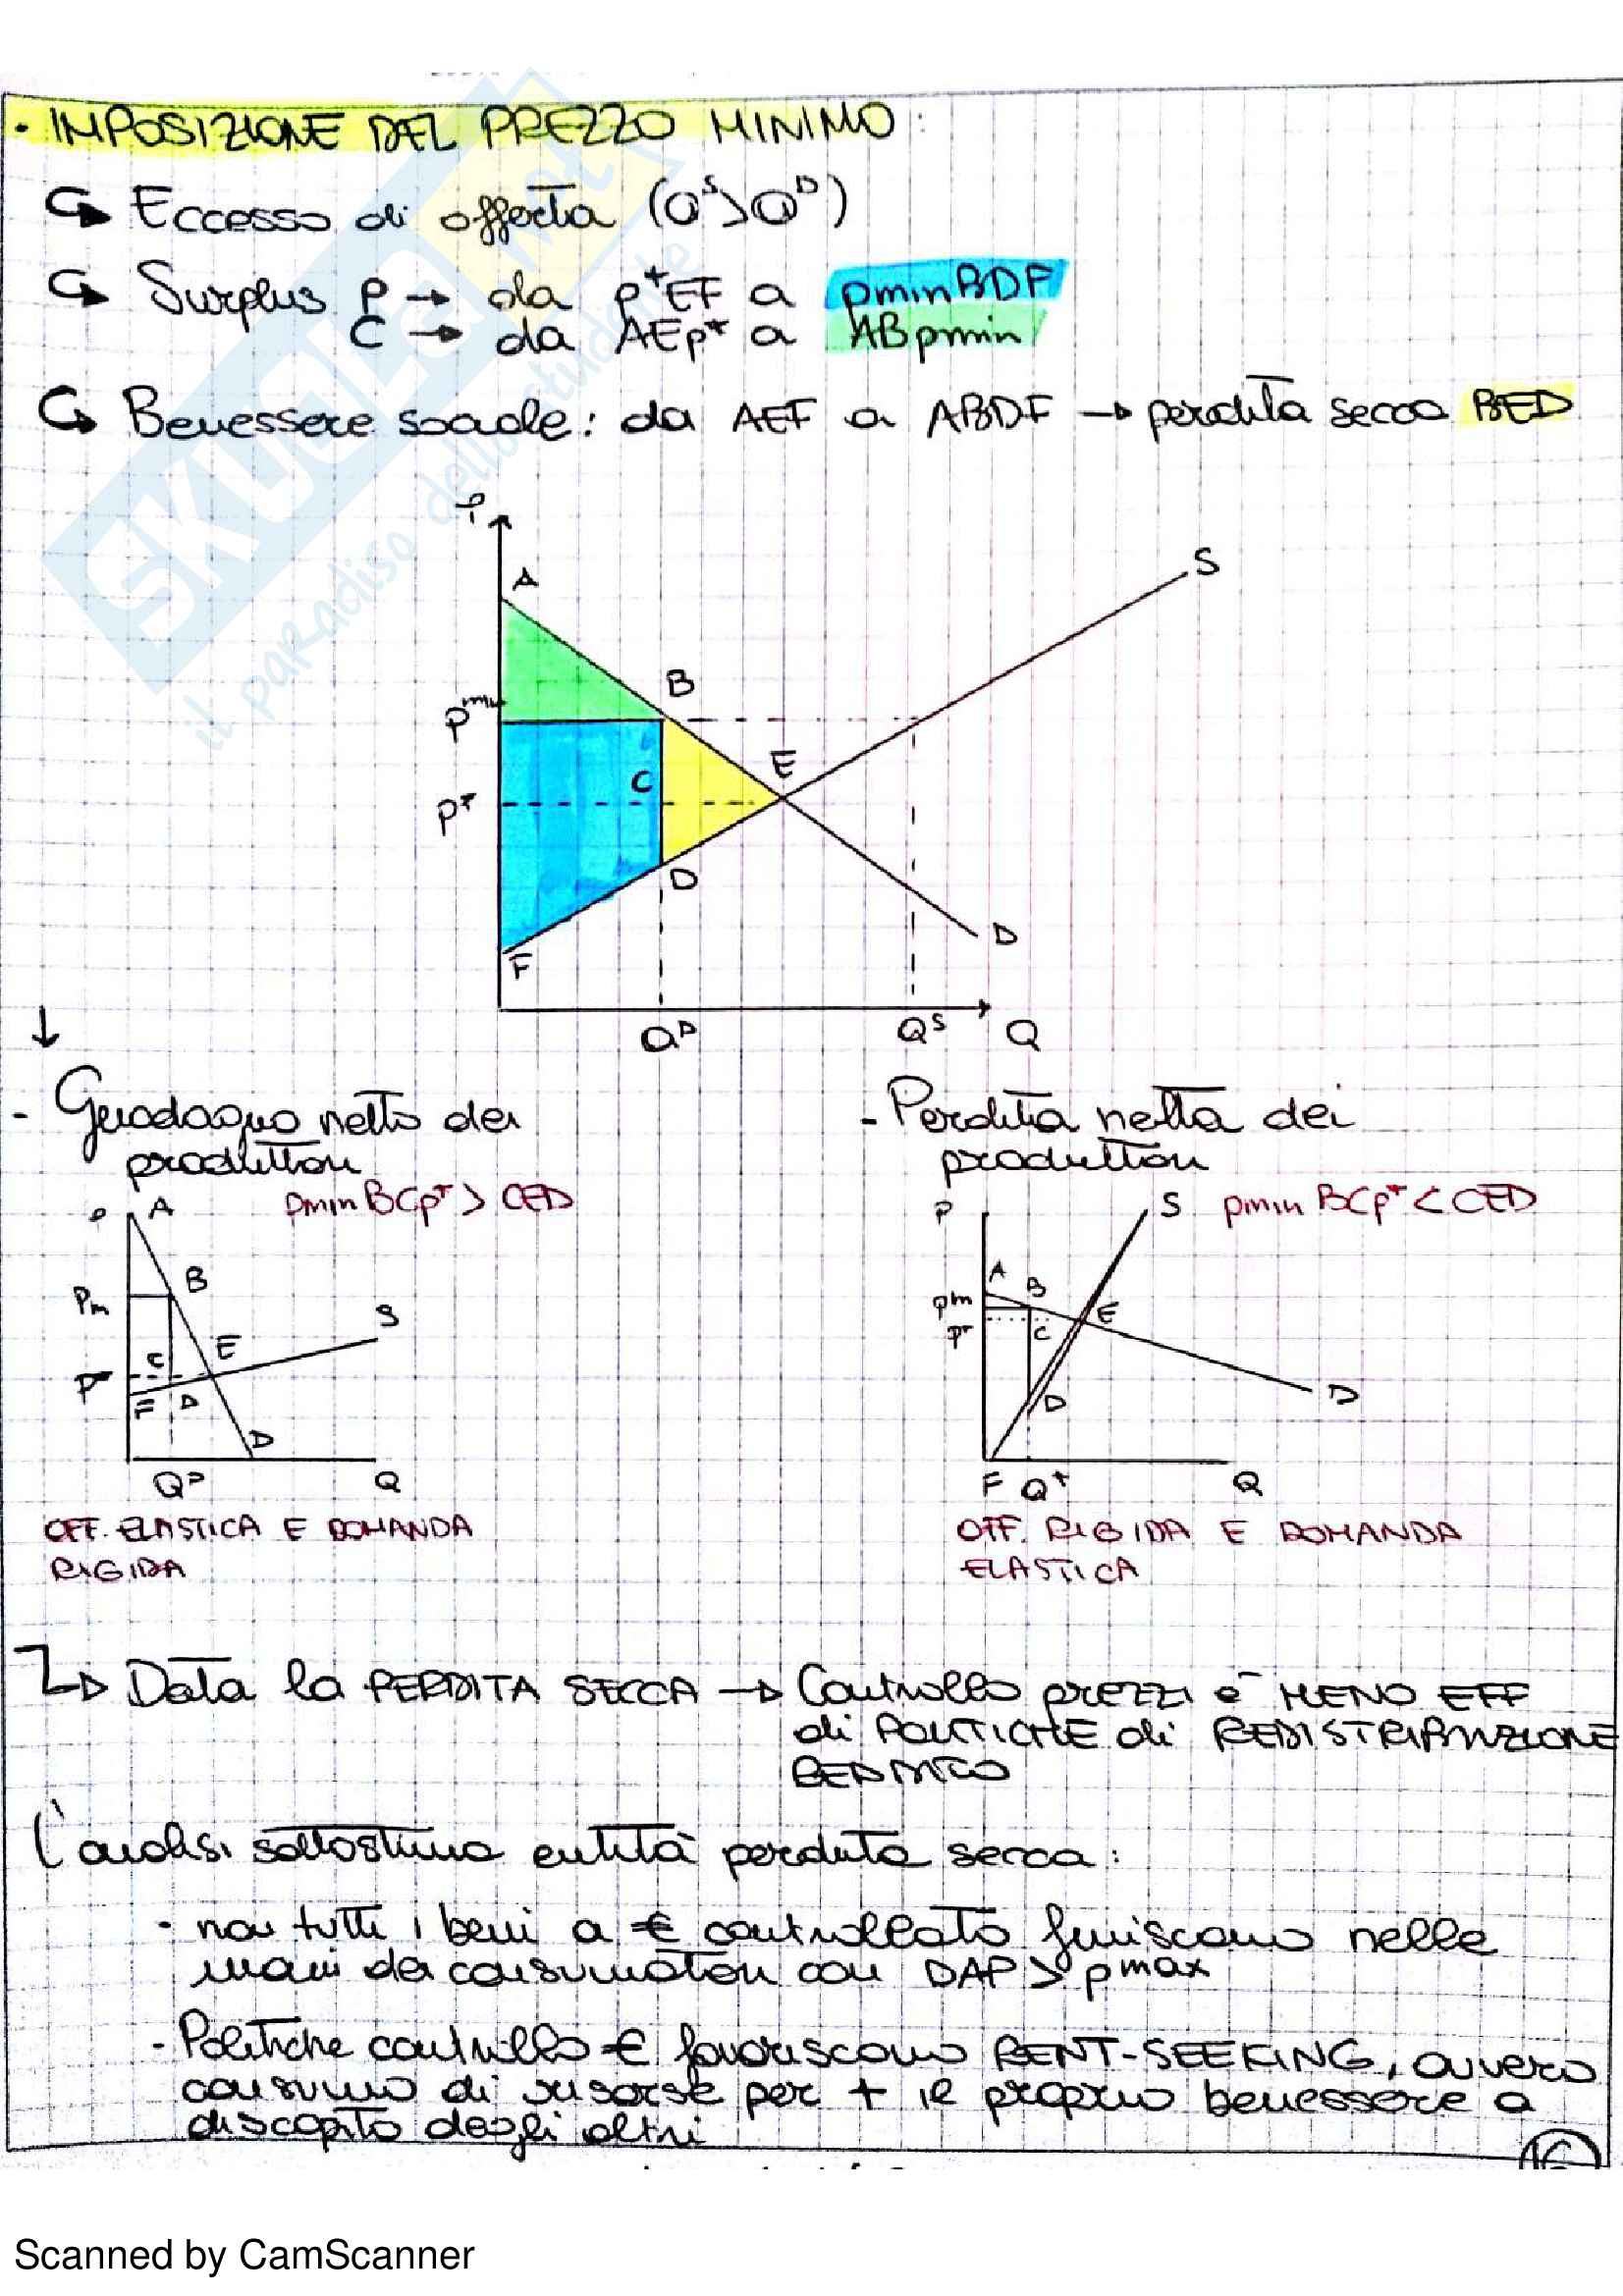 • IMPOSIZIONE DEL PREZZO MINIMO:
↳ Eccesso di offerta (Qˢ>Qᴰ)
↳ Surplus P → da p*EF a pminBDF
C → da AEp* a ABpmin
↳ Benessere sociale: da AEF a ABDF → perdita secca BED
P
A
S
B
pmin
E
C
p*
D
D
F
Qᴰ
Qˢ
Q
- Guadagno netto dei
produttori
- Perdita netta dei
produttori
P
A
pmin BCp* > CED
P
S
pmin BCp* < CED
B
Pm
S
E
C
p*
F
D
D
Qᴰ
Q
A
B
pm
E
p*
C
D
D
F
Q*
Q
OFF. ELASTICA E DOMANDA
RIGIDA
OFF. RIGIDA E DOMANDA
ELASTICA
↳ Data la PERDITA SECCA → Controllo prezzi è MENO EFF
di POLITICHE di REDISTRIBUZIONE
REDDITO
L'analisi sottostima entità perdita secca:
• non tutti i beni a € controllato finiscono nelle
mani dei consumatori con DAP > pmax
- Politiche controllo € favoriscono RENT-SEEKING, ovvero
consumo di risorse per + il proprio benessere a
discapito degli altri
16
SKUOLA.net
il paradiso dello studente
Scanned by CamScanner